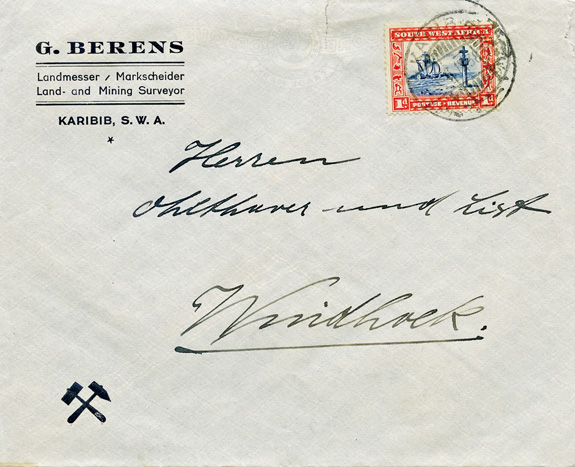 G. BERENS
Landmesser / Markscheider
Land- and Mining Surveyor
KARIBIB, S. W. A.
*
SOUTH WEST AFRICA
1d 1d
POSTAGE - REVENUE
Herren
Ohlthaver und List
Windhoek.